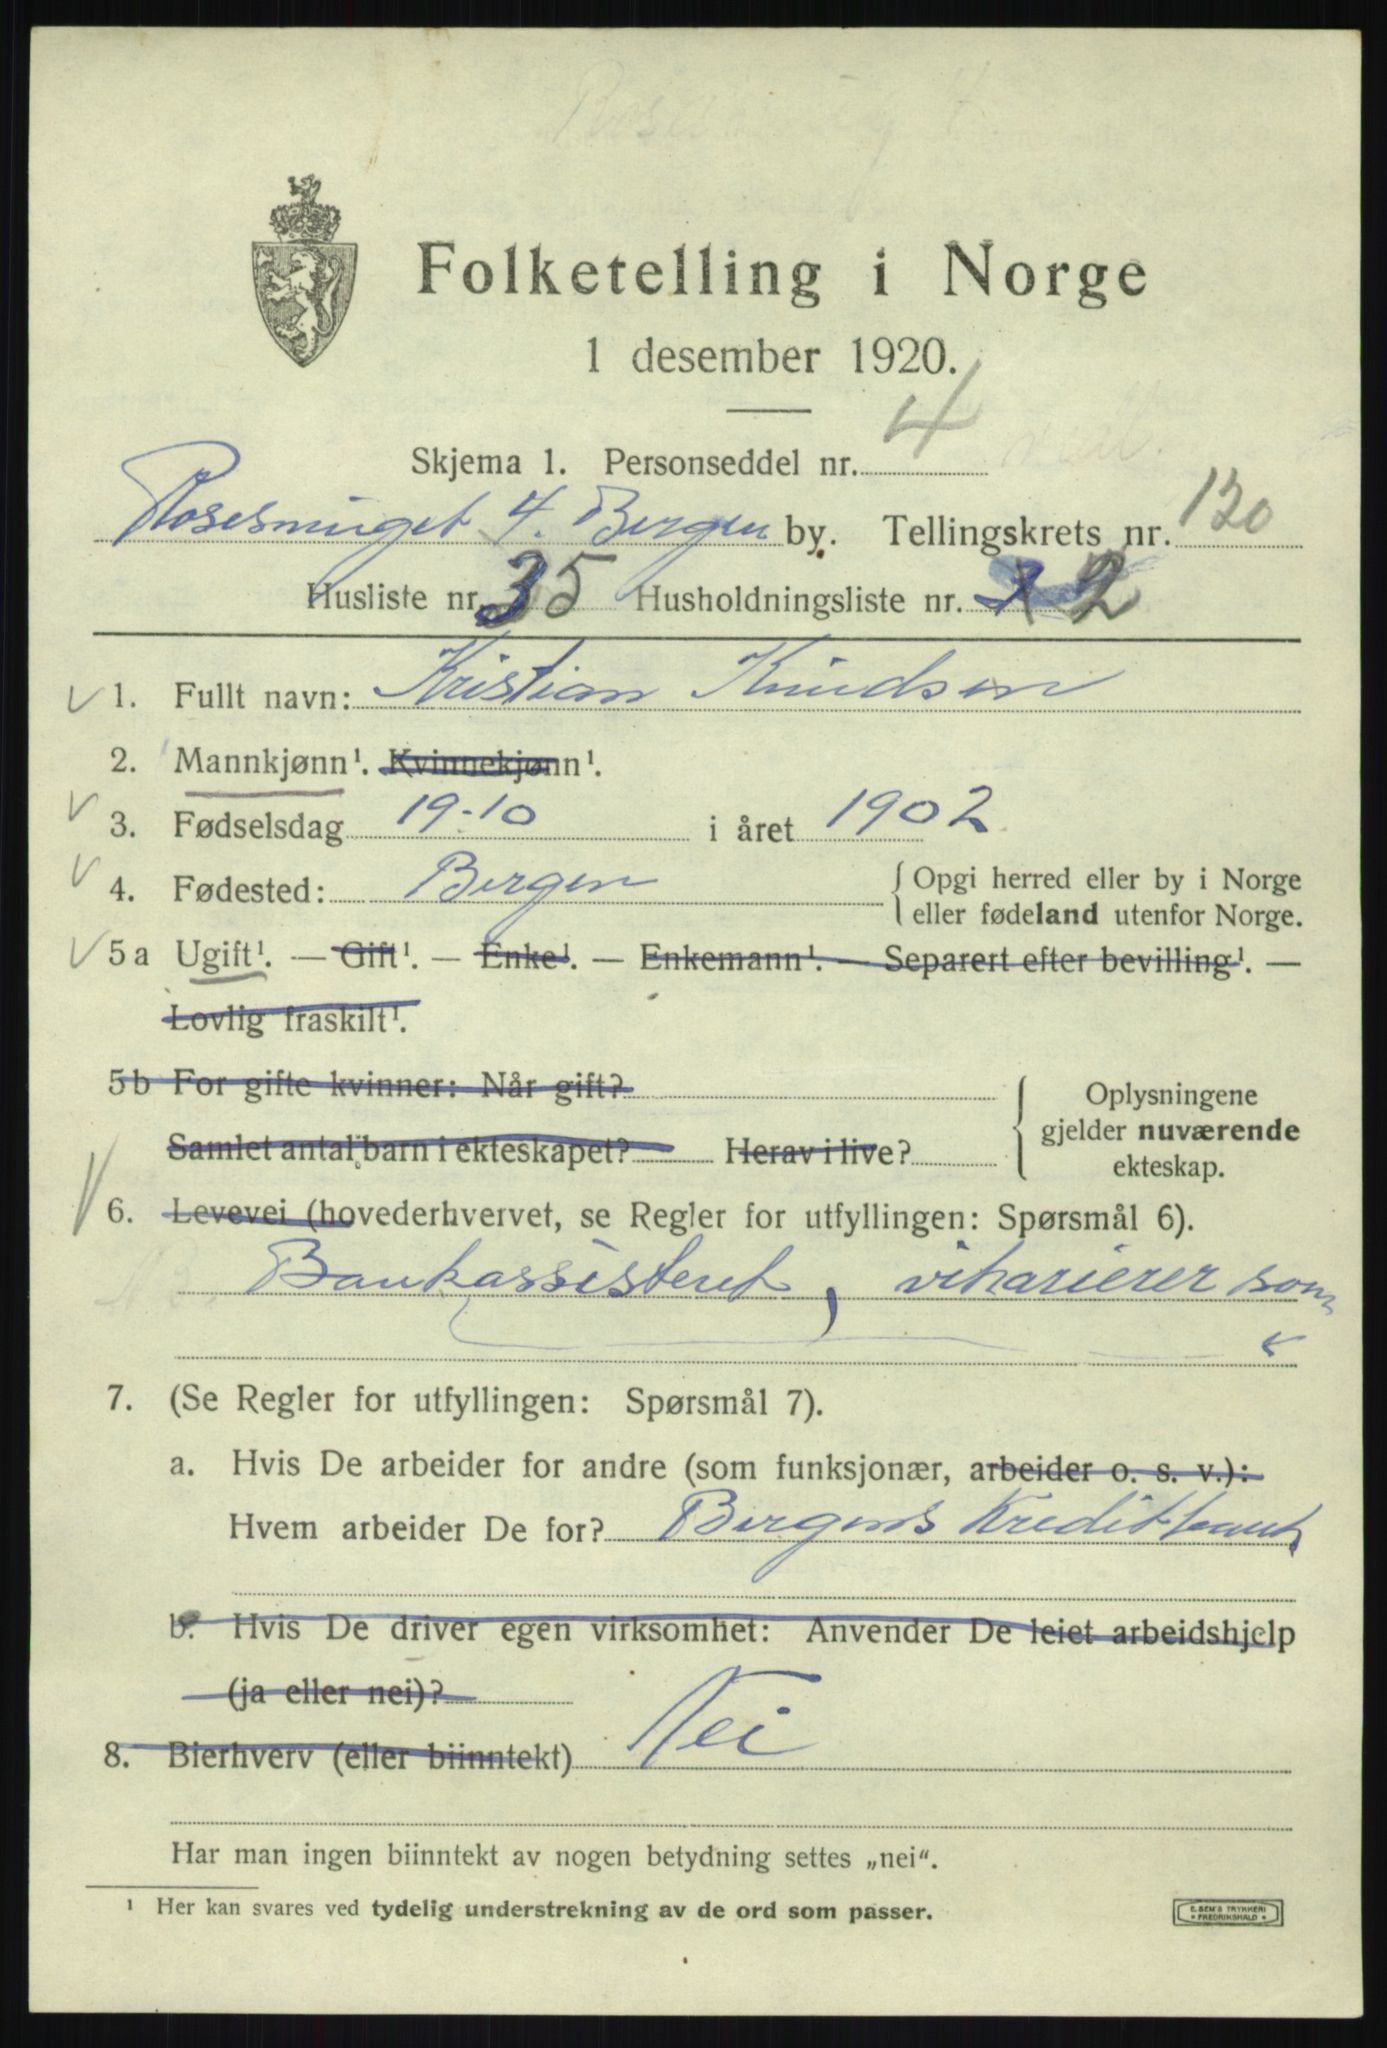 Folketelling i Norge
1 desember 1920.
Skjema 1. Personseddel nr. 4
Rosesmuget 4. Bergen by. Tellingskrets nr. 130
Husliste nr. 35 Husholdningsliste nr. 2
1. Fullt navn: Kristian Knudsen
2. Mannkjønn¹. Kvinnekjønn¹.
3. Fødselsdag 19-10 i året 1902
4. Fødested: Bergen { Opgi herred eller by i Norge
eller fødeland utenfor Norge.
5a Ugift¹. — Gift¹. — Enke¹. — Enkemann¹. — Separert efter bevilling¹. —
Lovlig fraskilt¹.
5b For gifte kvinner: Når gift?
Samlet antal barn i ekteskapet? Herav i live?
Oplysningene
gjelder nuværende
ekteskap.
6. Levevei (hovederhvervet, se Regler for utfyllingen: Spørsmål 6).
Bankassistent, vikarierer som
7. (Se Regler for utfyllingen: Spørsmål 7).
a. Hvis De arbeider for andre (som funksjonær, arbeider o. s. v.):
Hvem arbeider De for? Bergens Kreditbank
b. Hvis De driver egen virksomhet: Anvender De leiet arbeidshjelp
(ja eller nei)?
8. Bierhverv (eller biinntekt) Nei
Har man ingen biinntekt av nogen betydning settes „nei“.
¹ Her kan svares ved tydelig understrekning av de ord som passer.
E. SEM'S TRYKKERI
FREDRIKSHALD